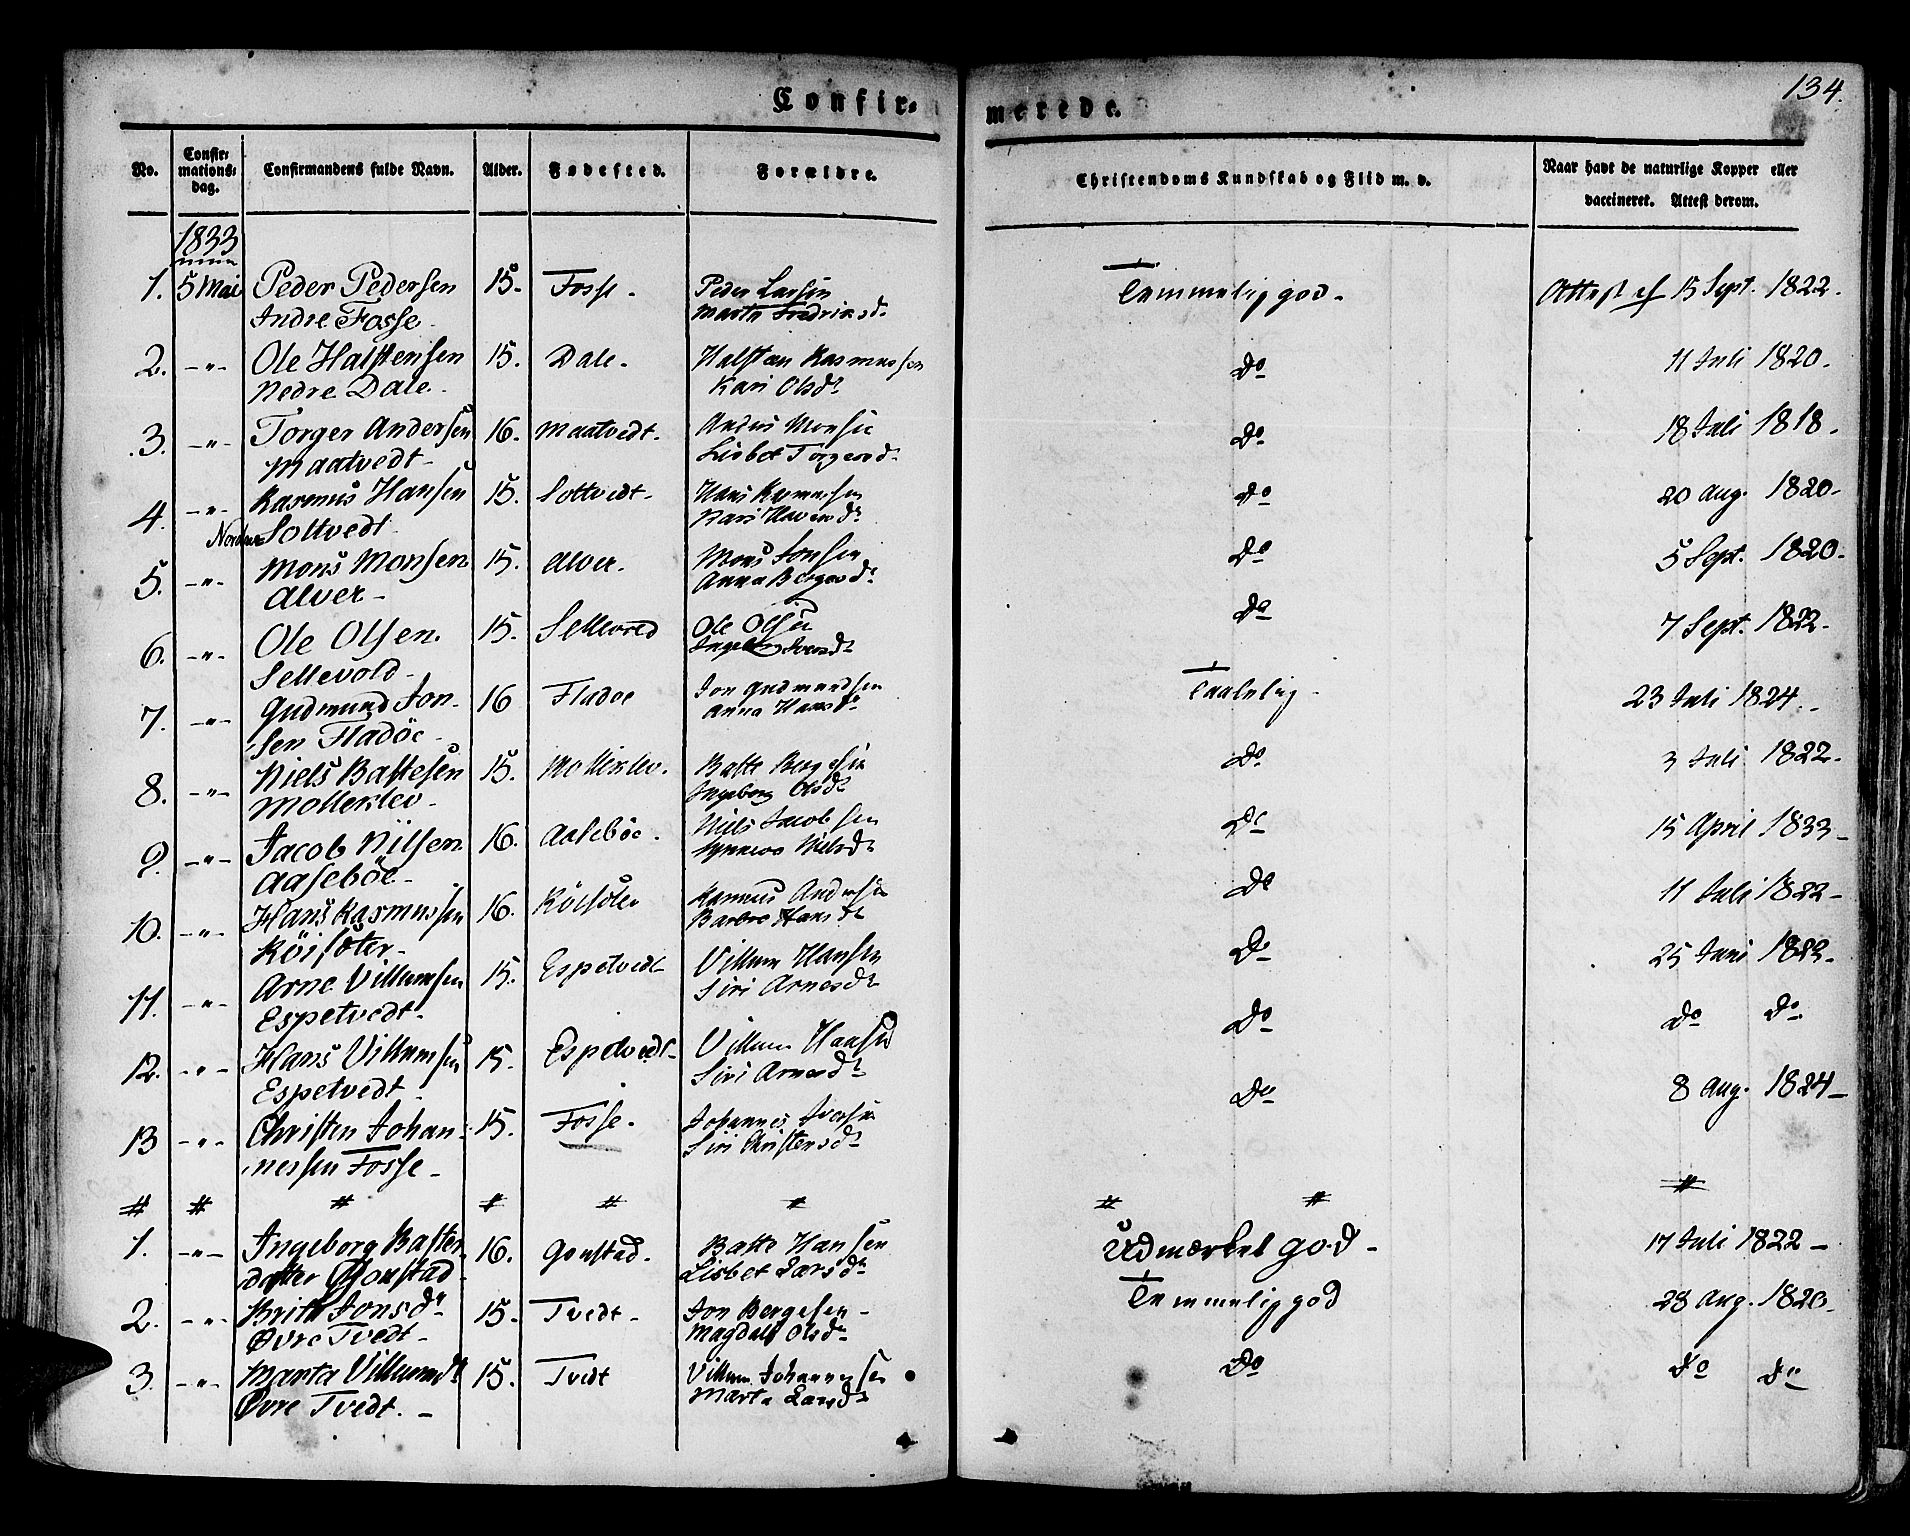 134.
Confir- merede.
No. Confir- mations- dag. Confirmandens fulde Navn. Alder. Fødested. Forældre. Christendoms Kundskab og Flid m. v. Naar havt de naturlige Kopper eller vaccineret. Attest derom.
1833
1. 5 Mai Peder Pedersen 15. Fosse. Peder Larsen Temmelig god. Attest af 15 Sept. 1822.
Indre Fosse. Marta Fredriksdr
2. -"- Ole Halstensen 15. Dale. Halsten Rasmussen Do 11 Juli 1820.
Nedre Dale. Kari Olsdr
3. -"- Torger Andersen 16. Maatvedt. Anders Monsen Do 18 Juli 1818.
Maatvedt Lisbet Torgersdr
4. -"- Rasmus Hansen 15. Soltvedt Hans Rasmussen Do 20 Aug. 1820
Nordre Soltvedt Kari
5. -"- Mons Monsen 15. Alver. Mons Jonsen Do 5 Sept. 1820
Alver Anna
6. -"- Ole Olsen. 15. Sellevold Ole Olsen Do 7 Sept. 1822
Sellevold Ingeb. Iversdr
7. -"- Gudmund Jon- 16 Fladöe Jon Gudmundsen Taalelig 23 Juli 1824.
sen Fladöe Anna Hansdr
8. -"- Niels Baltesen 15. Mollerklev. Balte Bergesen Do 3 Juli 1822.
Mollerklev Ingeborg Olsdr
9. -"- Jacob Nilsen 16. Aaseböe. Niels Jacobsen Do 15 April 1833
Aaseböe Nielsdr
10. -"- Hans Rasmussen 16. Rasmus Andersen Do 11 Juli 1822
Barbro Hansdr
11. -"- Arne Villumsen 15. Espetvedt Villum Hansen Do 25 Juni
Espetvedt. Siri Arnesdr
12. -"- Hans Villumsen 15. Espetvedt Villum Hansen Do Do Do
Espetvedt Siri Arnesdr
13 -"- Christen Johan- 15. Fosse. Johannes Iversen Do 8 Aug. 1824
nessen Fosse Siri Christensdr
# # # # # # # # #
1. -"- Ingeborg Baltes- 16. Gonstad. Balte Hansen Udmærket god 17 Juli 1822
datter Gonstad Lisbet Larsdr
2. -"- Brita Jonsdr 15. Tvedt Jon Bergesen Temmelig god 28 Aug. 1820
Øvre Tvedt Magdali Olsdr
3. -"- Marta Villumsdr 15. Tvedt Villum Johannesen Do Do Do
Øvre Tvedt. Marta Larsdr